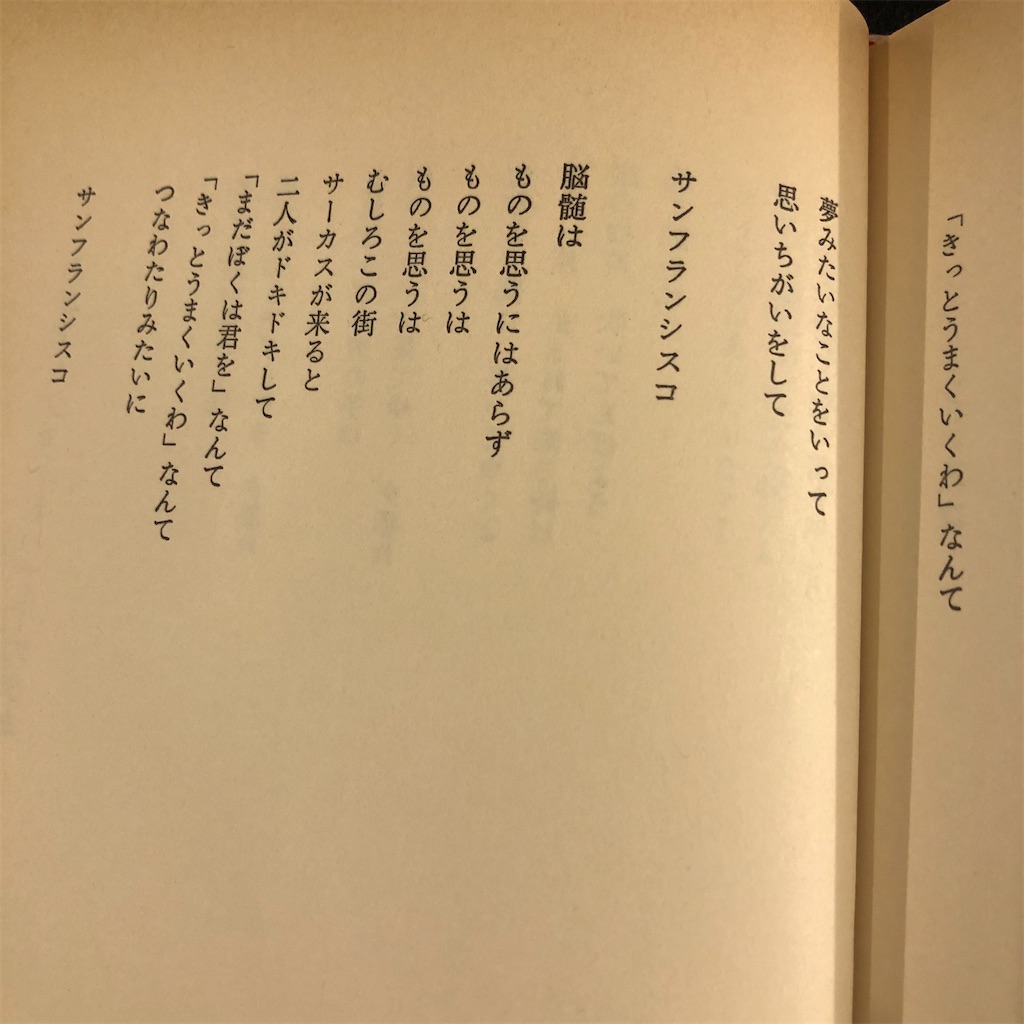 「きっとうまくいくわ」なんて
夢みたいなことをいって
思いちがいをして
サンフランシスコ
脳髄は
ものを思うにはあらず
ものを思うは
ものを思うは
むしろこの街
サーカスが来ると
二人がドキドキして
「まだぼくは君を」なんて
「きっとうまくいくわ」なんて
つなわたりみたいに
サンフランシスコ